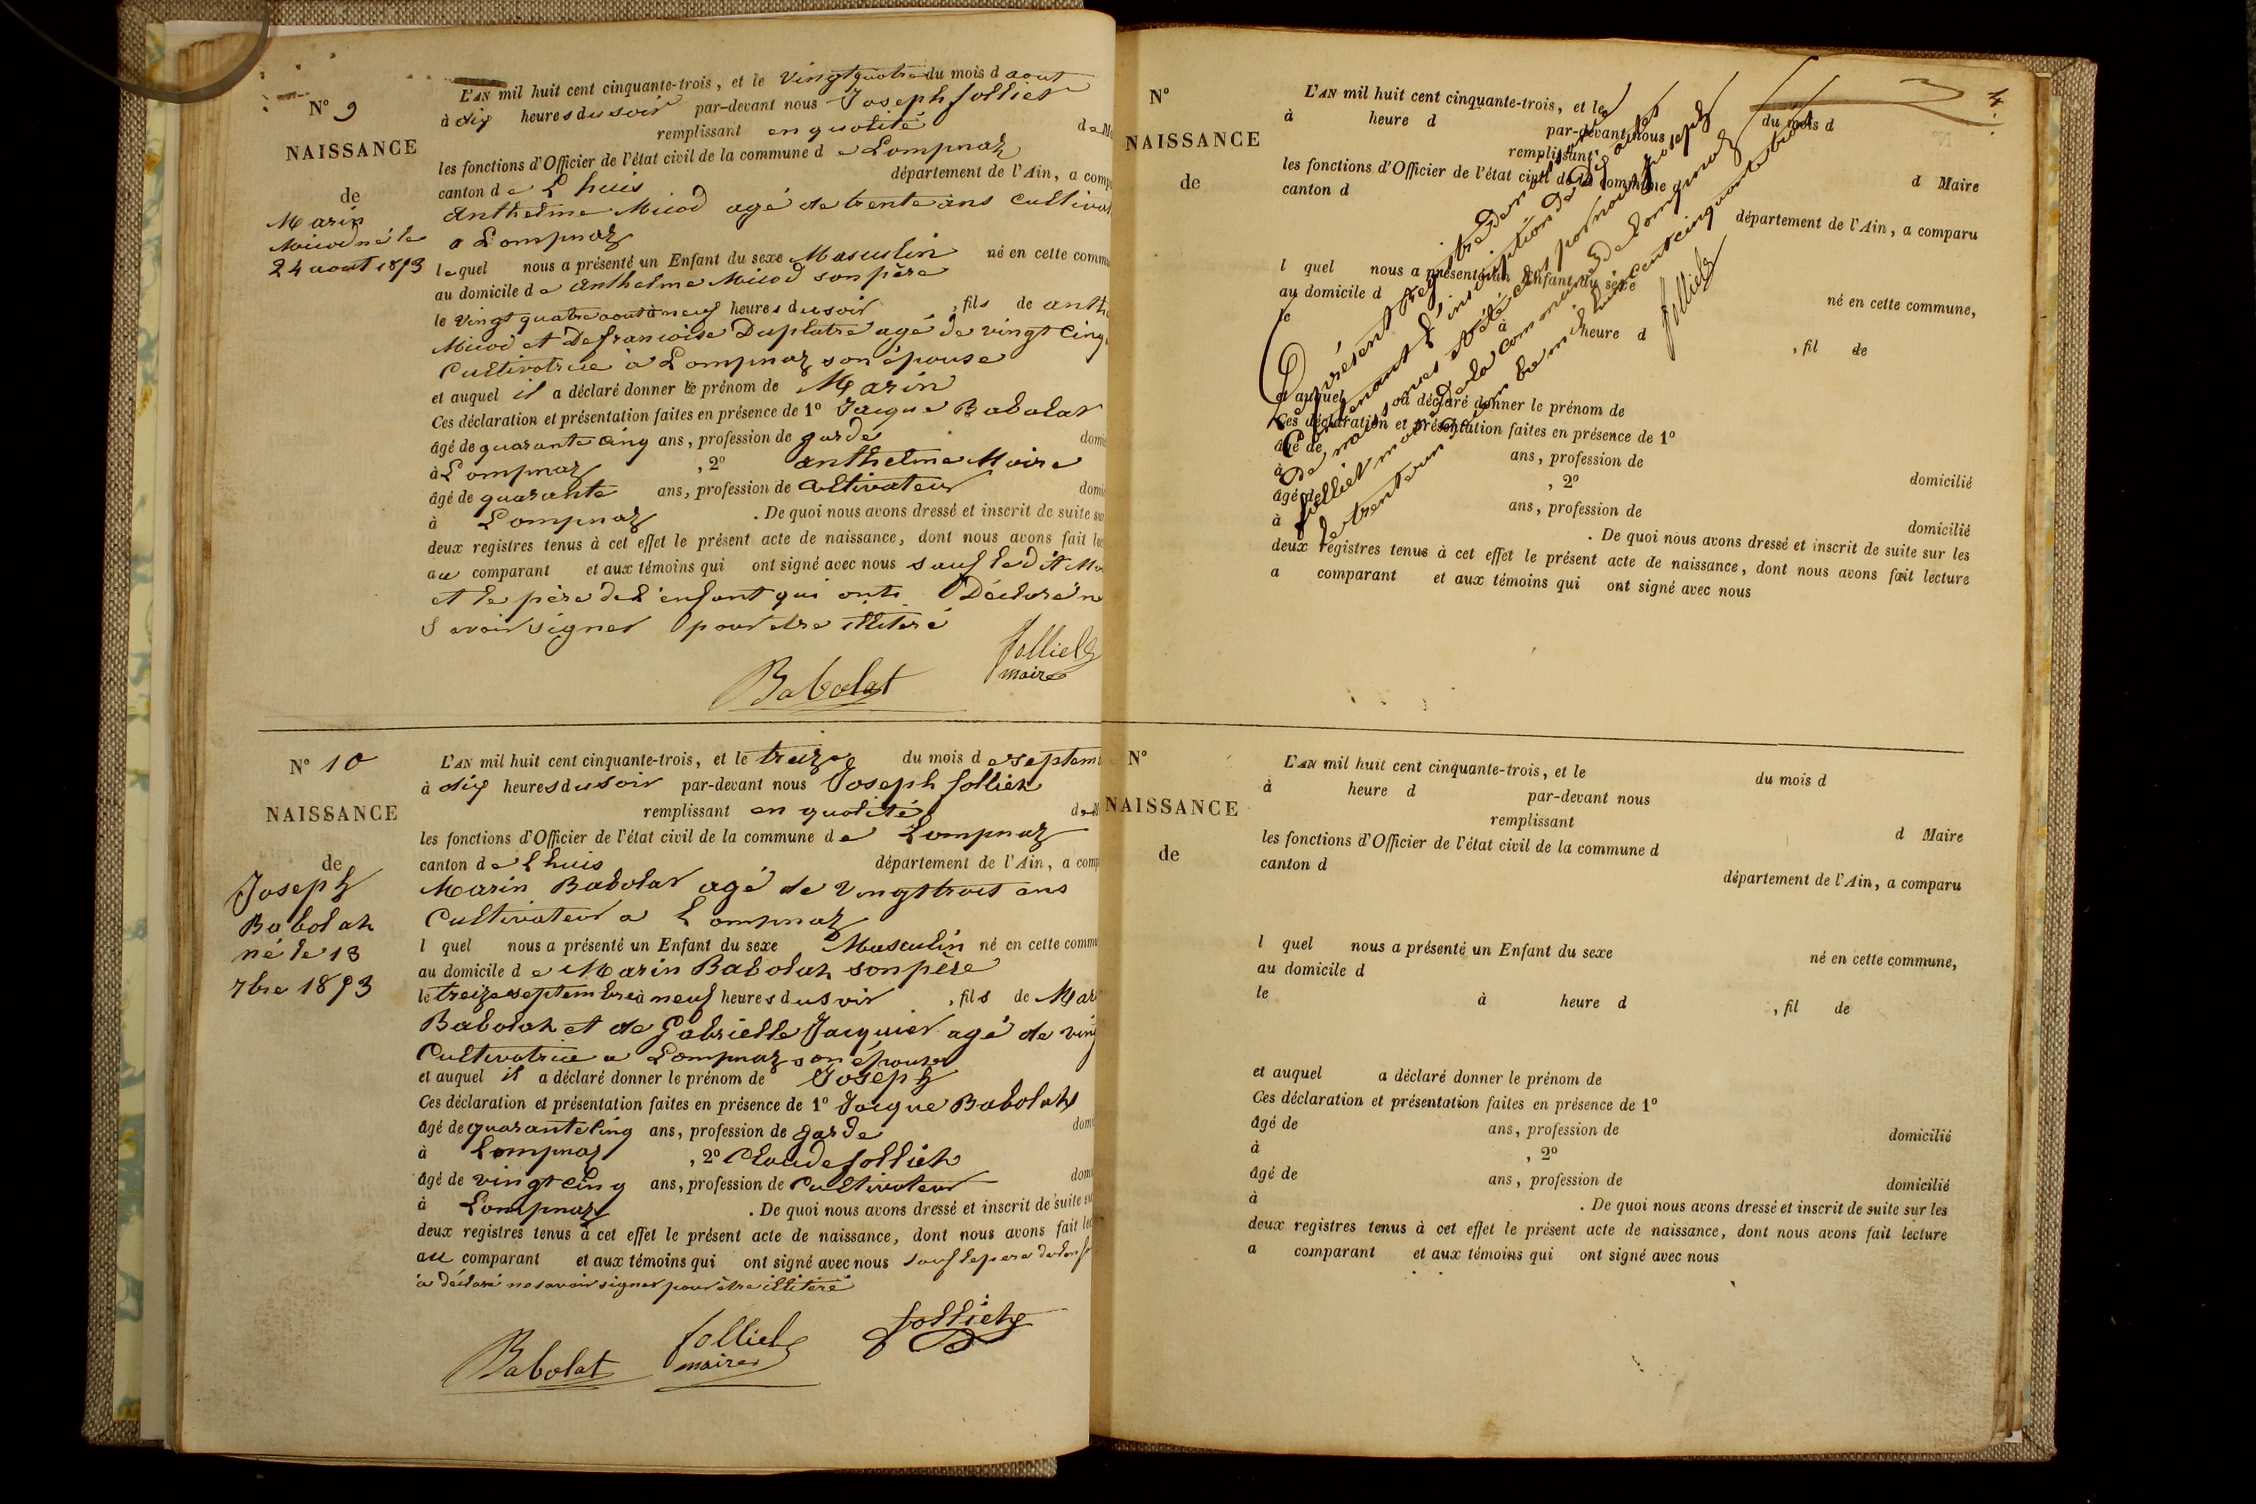 N° 9
NAISSANCE
de
Marin
Micod né le
24 aout 1853
L'AN mil huit cent cinquante-trois, et le vingt quatre du mois d aout
à dix heures du soir par-devant nous Joseph folliet
remplissant en qualité de M
les fonctions d'Officier de l'état civil de la commune de Lompnaz
canton de Lhuis département de l'Ain, a comp
Anthelme Micod agé de trente ans Cultivat
a Lompnaz
lequel nous a présenté un Enfant du sexe Masculin né en cette comm
au domicile de anthelme Micod son père
le vingt quatre aout à neuf heures du soir , fils de anth
Micod et De francoise Duplatre agé de vingt Cinq
Cultivatrice à Lompnaz son épouse
et auquel il a déclaré donner le prénom de Marin
Ces déclaration et présentation faites en présence de 1° Jacque Babolat
âgé de quarante cinq ans, profession de garde domi
à Lompnaz , 2° anthelme Moire
âgé de quarante ans, profession de Cultivateur domi
à Lompnaz . De quoi nous avons dressé et inscrit de suite su
deux registres tenus à cet effet le présent acte de naissance, dont nous avons fait lec
au comparant et aux témoins qui ont signé avec nous sauf le dit Mo
et le père de l'enfant qui ont Déclaré n
savoir signer pour etre illitéré
Babolat
folliet
maire
N° 10
NAISSANCE
de
Joseph
Babolat
né le 13
7bre 1853
L'AN mil huit cent cinquante-trois, et le treize du mois de septem
à dix heures du soir par-devant nous Joseph folliet
remplissant en qualité de M
les fonctions d'Officier de l'état civil de la commune de Lompnaz
canton de Lhuis département de l'Ain, a comp
Marin Babolat agé de vingt trois ans
Cultivateur a Lompnaz
l quel nous a présenté un Enfant du sexe Masculin né en cette commu
au domicile de Marin Babolat son père
le treize septembre à neuf heures du soir , fils de Mar
Babolat et de Gabrielle Jacquier agé de ving
Cultivatrice a Lompnaz son épouse
et auquel il a déclaré donner le prénom de Joseph
Ces déclaration et présentation faites en présence de 1° Jacque Babolat
âgé de quarante Cinq ans, profession de garde domi
à Lompnaz , 2° Claude folliet
âgé de vingt Cinq ans, profession de Cultivateur domi
à Lompnaz . De quoi nous avons dressé et inscrit de suite su
deux registres tenus à cet effet le présent acte de naissance, dont nous avons fait lec
au comparant et aux témoins qui ont signé avec nous sauf le pere de lenf
a déclaré ne savoir signer pour être illitéré
Babolat
folliet
maire
folliet
4.
N°
NAISSANCE
de
L'AN mil huit cent cinquante-trois, et le du mois d
à heure d par-devant nous
remplissant d Maire
les fonctions d'Officier de l'état civil de la commune d
canton d département de l'Ain, a comparu
l quel nous a présenté un Enfant du sexe né en cette commune,
au domicile d
le à heure d , fil de
et auquel a déclaré donner le prénom de
Ces déclaration et présentation faites en présence de 1°
âgé de ans, profession de domicilié
à , 2°
âgé de ans, profession de domicilié
à . De quoi nous avons dressé et inscrit de suite sur les
deux registres tenus à cet effet le présent acte de naissance, dont nous avons fait lecture
a comparant et aux témoins qui ont signé avec nous
Le présent registre de
Contenant l'inscription de dix actes
de naissances et été clos par nous Joseph
folliet maire de la commune de Lompnaz
le trente un mil huit cent cinquante trois
folliet
N°
NAISSANCE
de
L'AN mil huit cent cinquante-trois, et le du mois d
à heure d par-devant nous
remplissant d Maire
les fonctions d'Officier de l'état civil de la commune d
canton d département de l'Ain, a comparu
l quel nous a présenté un Enfant du sexe né en cette commune,
au domicile d
le à heure d , fil de
et auquel a déclaré donner le prénom de
Ces déclaration et présentation faites en présence de 1°
âgé de ans, profession de domicilié
à , 2°
âgé de ans, profession de domicilié
à . De quoi nous avons dressé et inscrit de suite sur les
deux registres tenus à cet effet le présent acte de naissance, dont nous avons fait lecture
a comparant et aux témoins qui ont signé avec nous